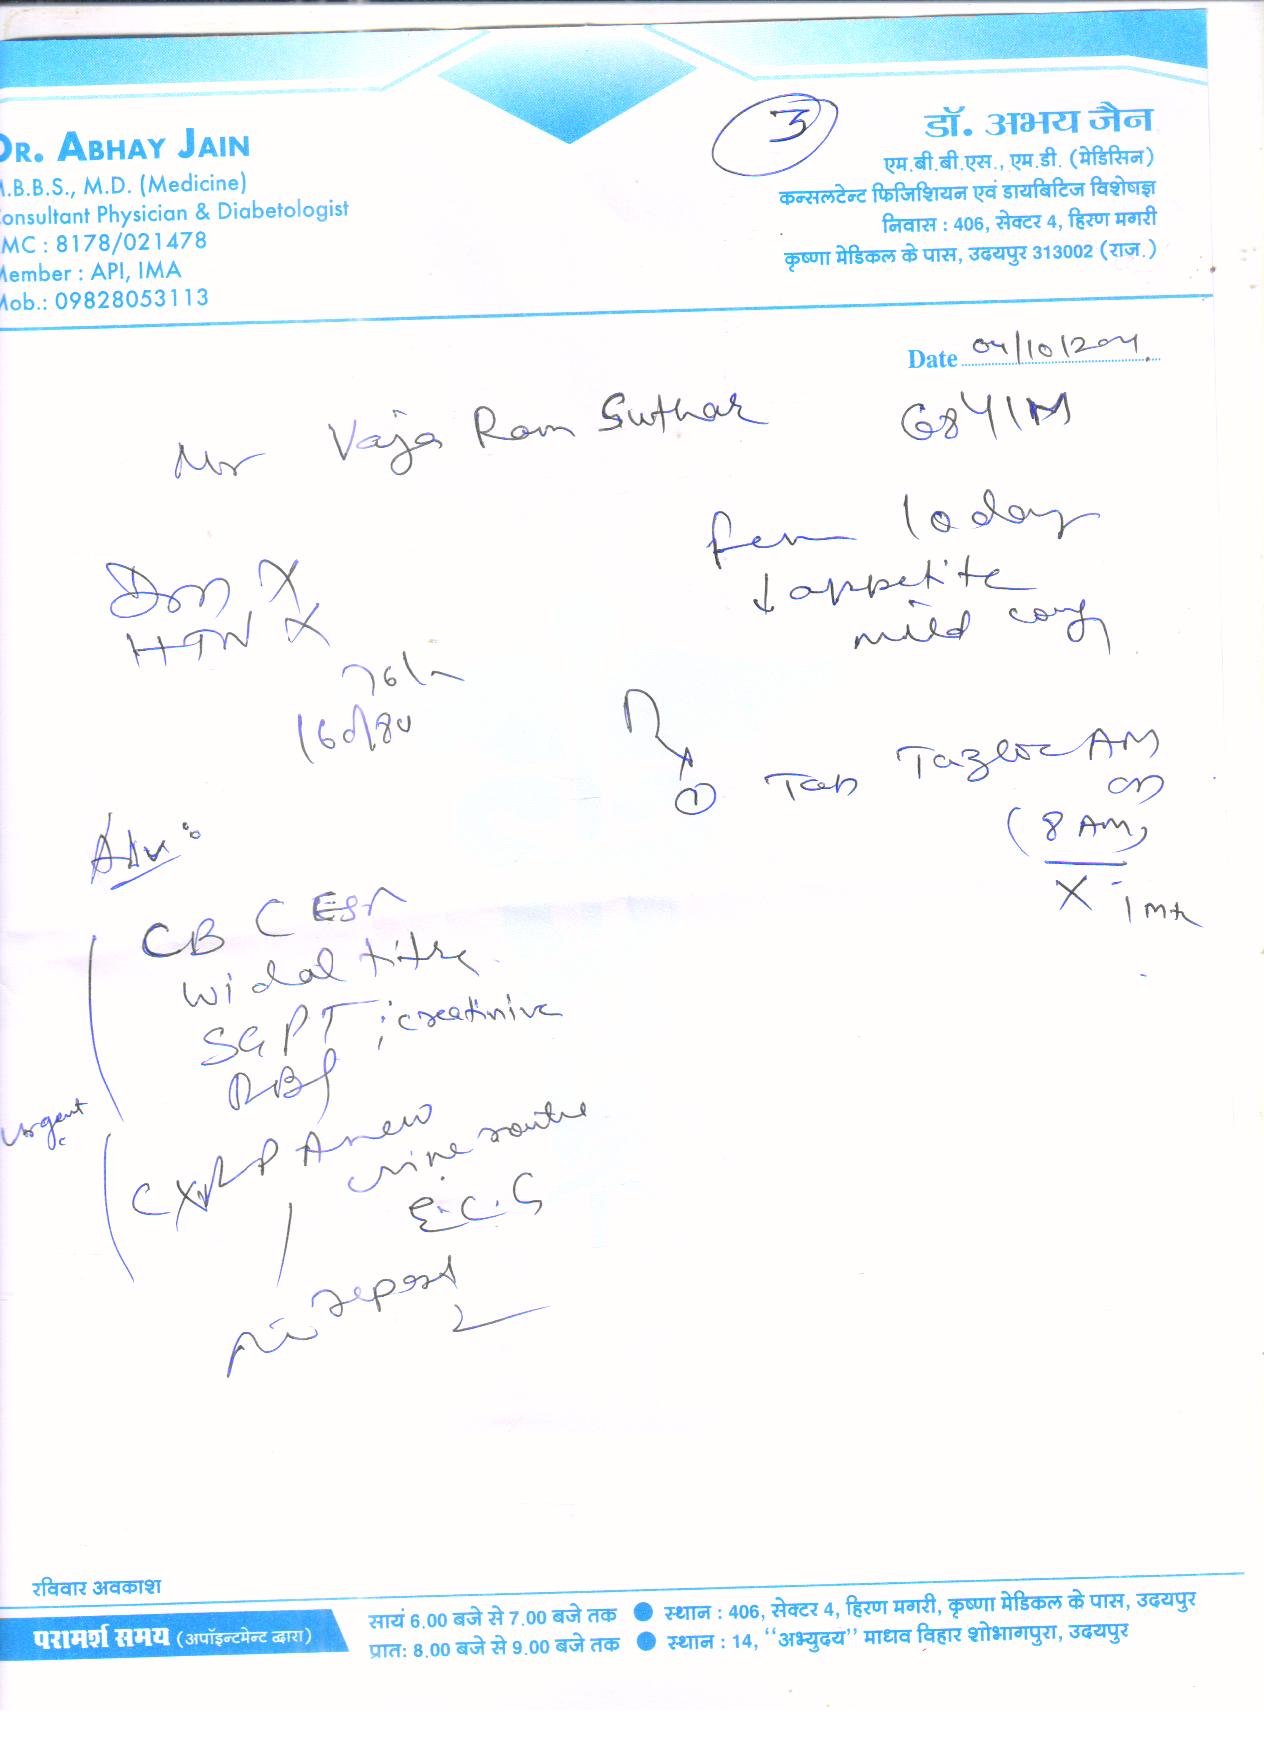 3
DR. ABHAY JAIN
M.B.B.S., M.D. (Medicine)
Consultant Physician & Diabetologist
MC : 8178/021478
Member : API, IMA
Mob.: 09828053113
डॉ. अभय जैन
एम.बी.बी.एस., एम.डी. (मेडिसिन)
कन्सलटेन्ट फिजिशियन एवं डायबिटिज विशेषज्ञ
निवास : 406, सेक्टर 4, हिरण मगरी
कृष्णा मेडिकल के पास, उदयपुर 313002 (राज.)
Date 04/10/204
Mr Vaja Ram Suthar 68Y/M
10 day
↓ appetite
mild
DM X
HTN X
76/
160/80
Rx
① Tab Tazloc AM
OD
(8 AM)
X 1
Adv:
CBC ESR
widal titre
SGPT ; creatinine
RBS
urgent
CXR PA view
urine routine
E.C.G
report
रविवार अवकाश
परामर्श समय (अपॉइन्टमेन्ट द्वारा)
सायं 6.00 बजे से 7.00 बजे तक ● स्थान : 406, सेक्टर 4, हिरण मगरी, कृष्णा मेडिकल के पास, उदयपुर
प्रात: 8.00 बजे से 9.00 बजे तक ● स्थान : 14, ‘‘अभ्युदय’’ माधव विहार शोभागपुरा, उदयपुर